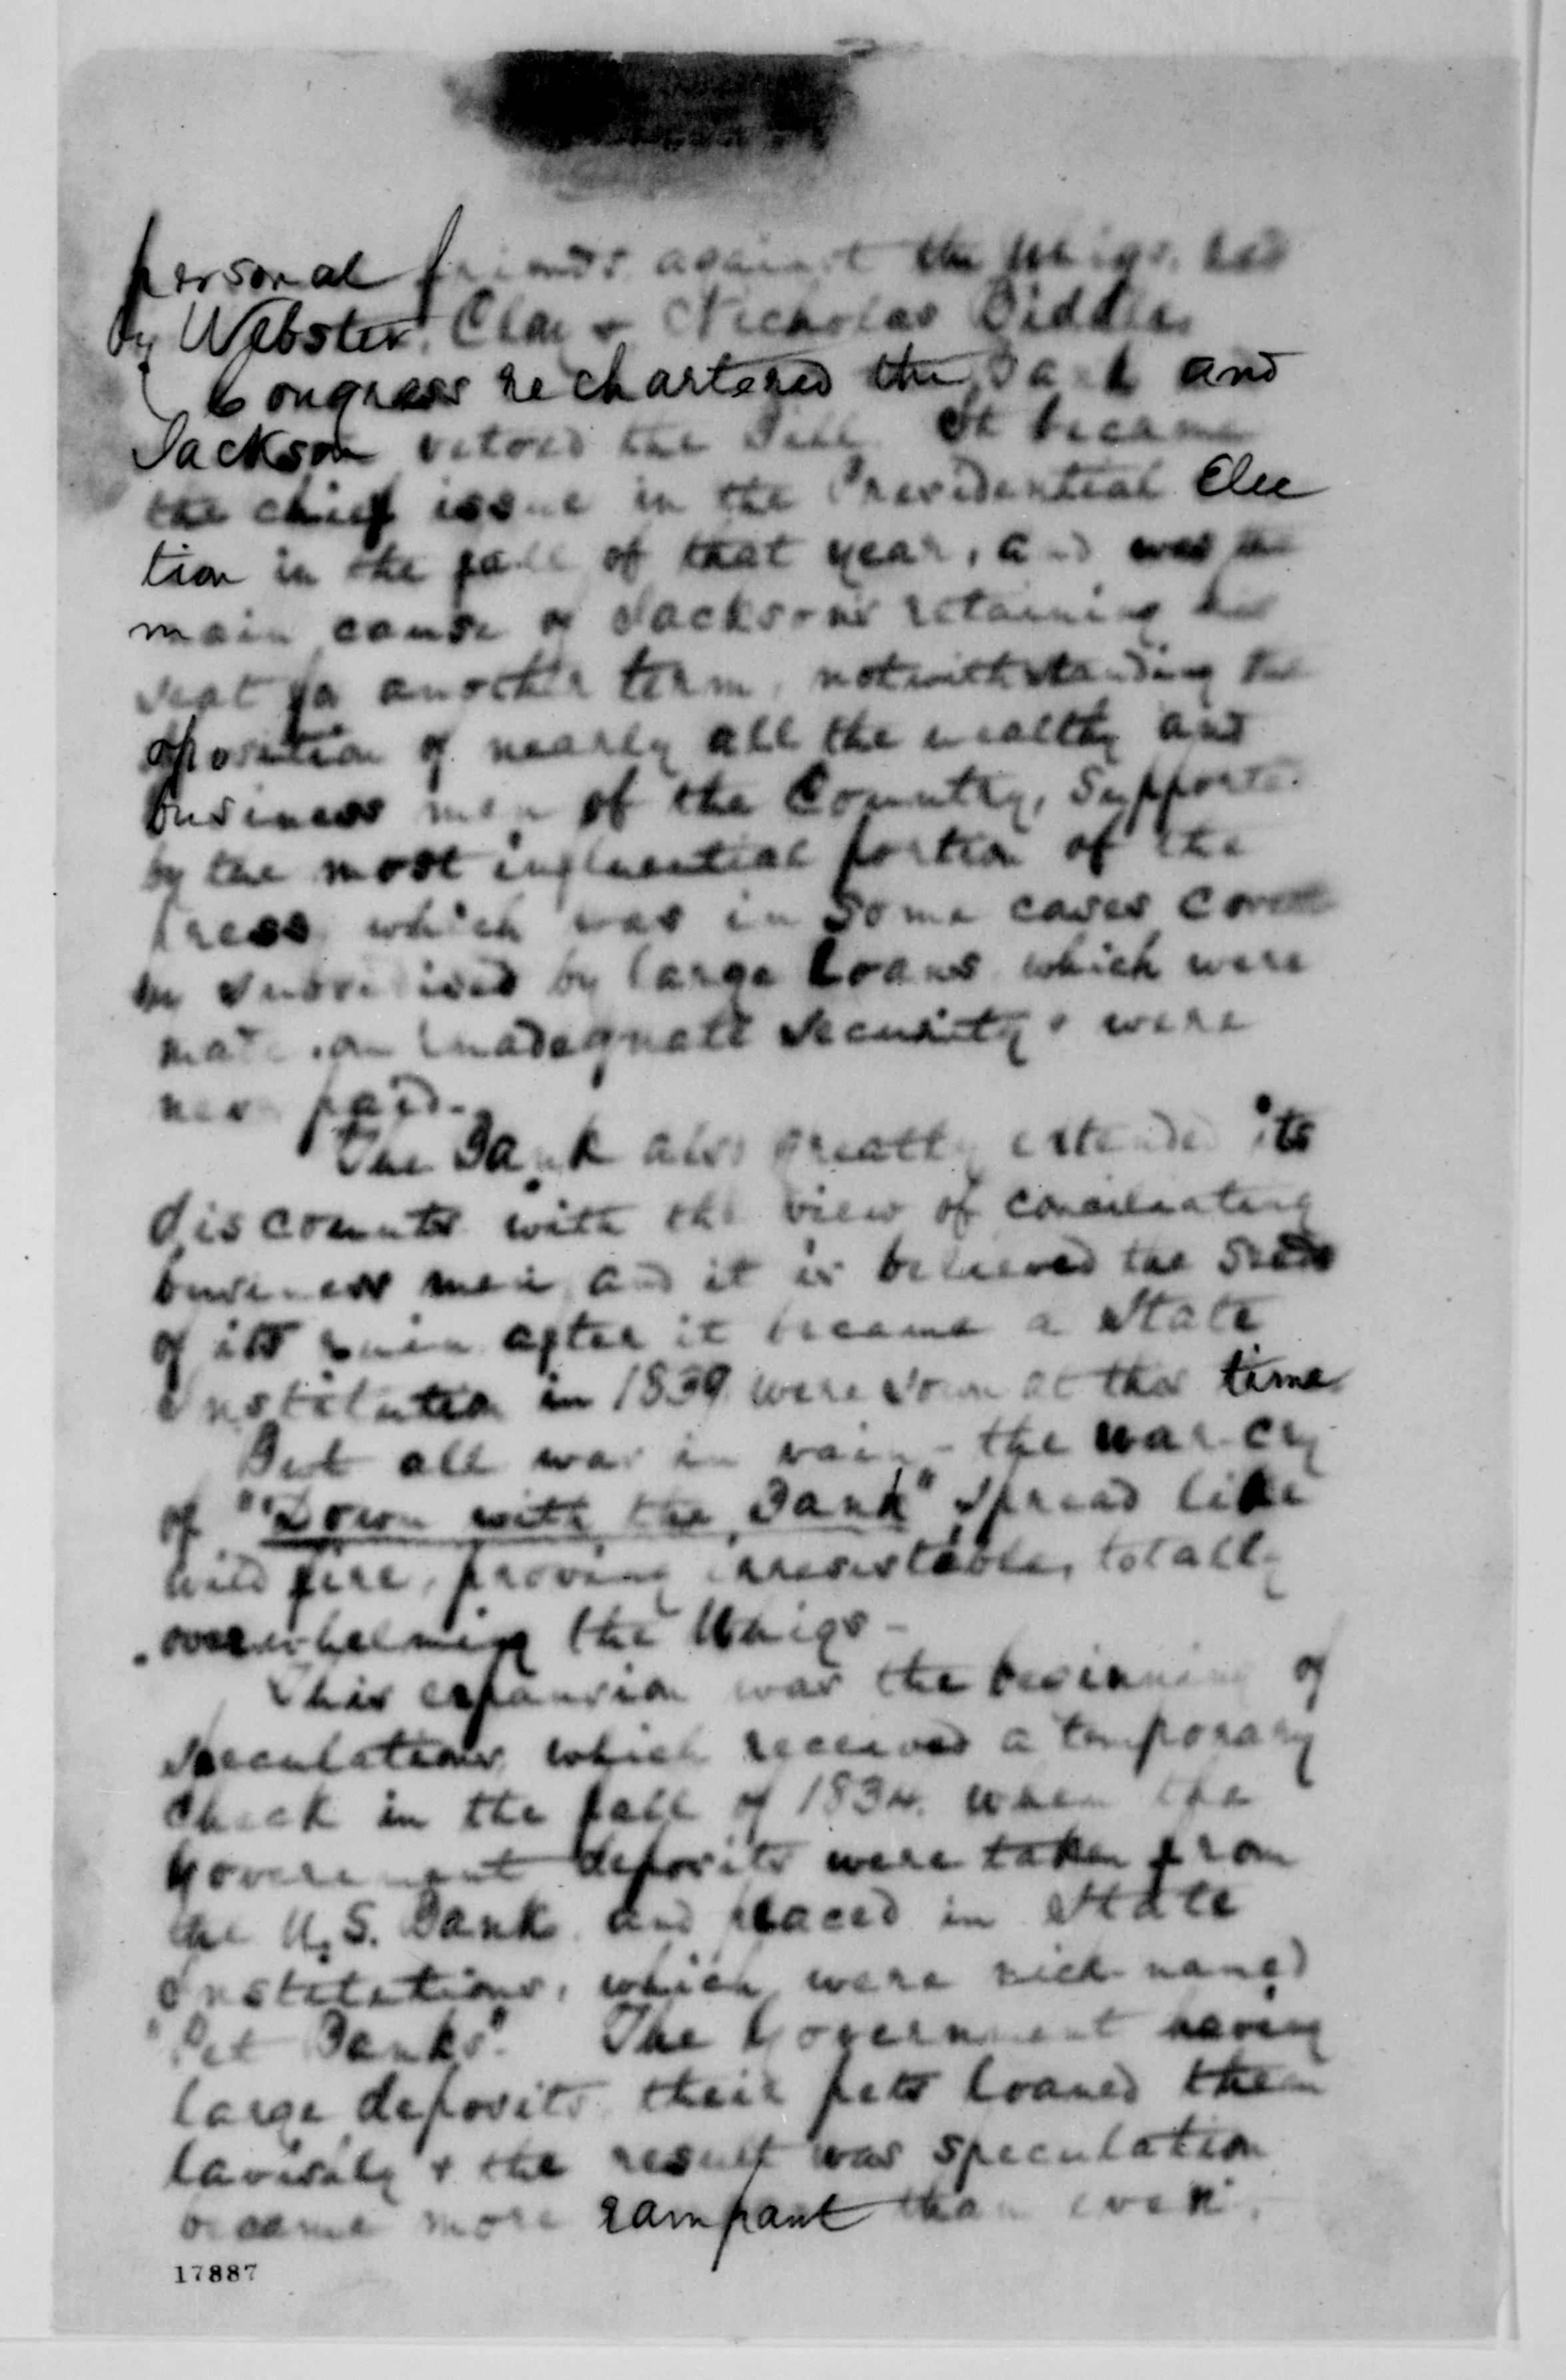 personal friends against the Whigs, led
by Webster, Clay & Nicholas Biddle,
Congress rechartered the Bank and
Jackson vetoed the Bill. It became
the chief issue in the Presidential Elec
tion in the fall of that year, and was the
main cause of Jacksons retaining his
seat for another term, notwithstanding the
opposition of nearly all the wealthy and
business men of the Country, Supported
by the most influential portion of the
press, which was in some cases
subsidised by large Loans which were
made on inadequate security & were
never paid.
The Bank also greatly extended its
discounts with the view of conciliating
business men, and it is believed the seeds
of its ruin after it became a State
Institution in 1839 were sown at this time.
But all was in vain - the war cry
of "Down with the Bank" spread like
wild fire, proving irresistable, totally
overwhelming the Whigs -
This expansion was the beginning of
speculations, which received a temporary
check in the fall of 1834. when the
Government deposits were taken from
the U.S. Bank and placed in State
Institutions, which were nick-named
"Pet Banks". The Government having
large deposits, their pets loaned them
lavishly & the result was speculation
became more rampant than ever.
17887